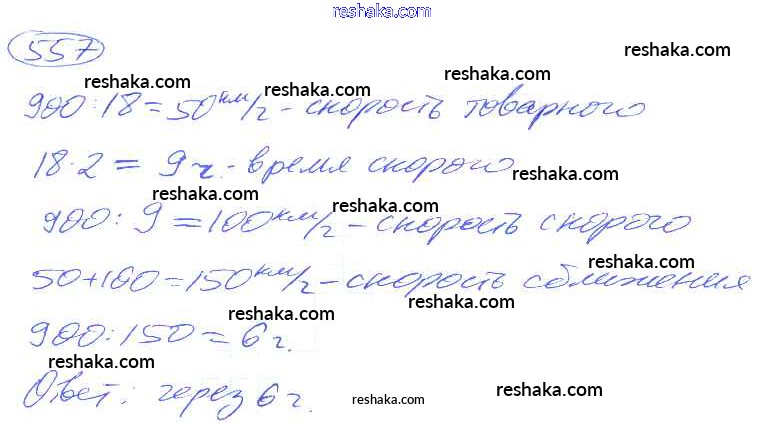 reshaka.com
557
reshaka.com
reshaka.com
reshaka.com reshaka.com
900 : 18 = 50 км/ч - скорость товарного
18 · 2 = 9 ч. - время скорого
reshaka.com
reshaka.com reshaka.com
900 : 9 = 100 км/ч - скорость скорого
reshaka.com
50 + 100 = 150 км/ч - скорость сближения
reshaka.com reshaka.com
900 : 150 = 6 ч.
reshaka.com
Ответ: через 6 ч.
reshaka.com reshaka.com